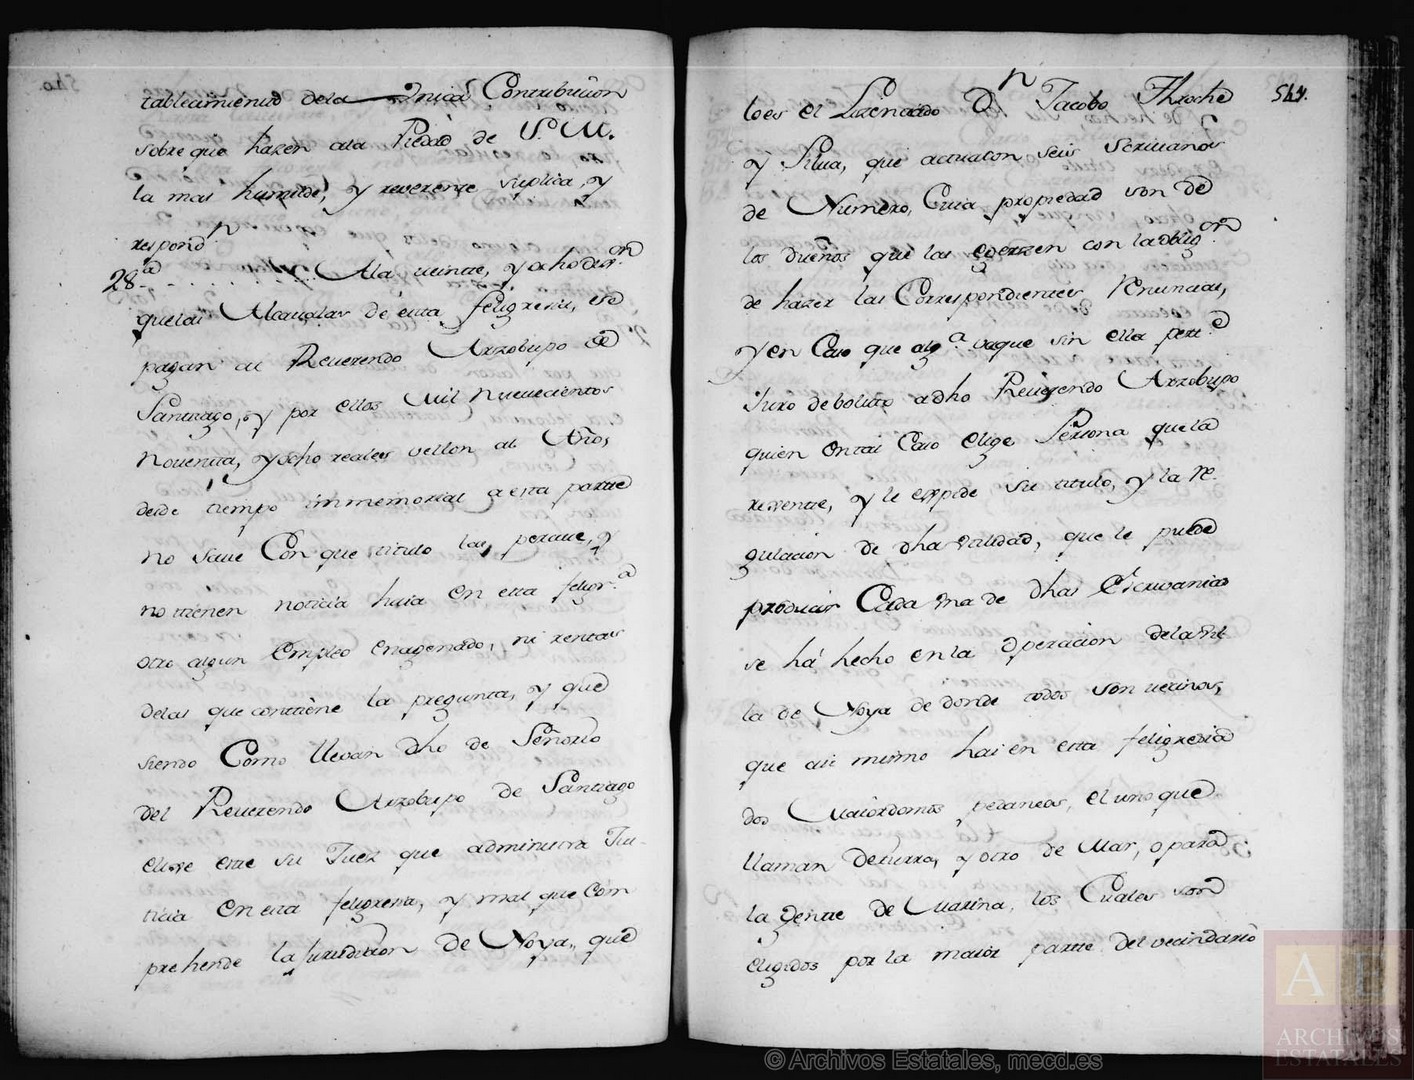 tablecimiento dela Unica Contribucion
sobre que hazen ala Piedad de S. M.
la mas humilde, y reverente suplica, y
respond.n
28.a A la veinte, y ocho dixer.on
quelas Alcavalas de esta feligresia, se
pagan al Reverendo Arzobispo de
Santiago, y por ellos Mil Nuevecientos
Noventa, y ocho reales vellon al Año,
desde tiempo inmemorial a esta parte
no save Con que titulo las perave, y
no tienen noticia haia en esta feligr.a
otro algun Empleo Enagenado, ni rentas
delas que contiene la pregunta, y que
siendo Como llevan dho de Señorio
del Reverendo Arzobispo de Santiago
elixe este su Juez que administra Jus-
ticia en esta feligresia, y mas que Com
prehende la Jurisdizion de Noya, que
544.
lo es el Lizenciado D.n Jacobo Throche
y Silva, que actuaron seis Scrivanos
de Numero, Cuia propiedad son de
los dueños que las egerzen con la oblig.on
de hazer las Correspondientes Renuncias,
y en Caso que alg.a vaque sin ella perte
Juro deboluto a dho Reverendo Arzobispo
quien en tal Caso elige Persona que la
reviente, y le expide su titulo, y la re-
gulacion de dha utilidad, que le puede
producir Cada una de dhas Escrivanias
se há hecho en la Operacion dela Vi-
lla de Noya de donde todos son vecinos,
que asi mismo hai en esta feligresia
dos Maiordomos pedaneos, el uno que
llaman de tierra, y otro de Mar, o para
la gente de Marina, los Cuales son
elegidos por la maior parte del vecindario
© Archivos Estatales, mecd.es
AE
ARCHIVOS
ESTATALES